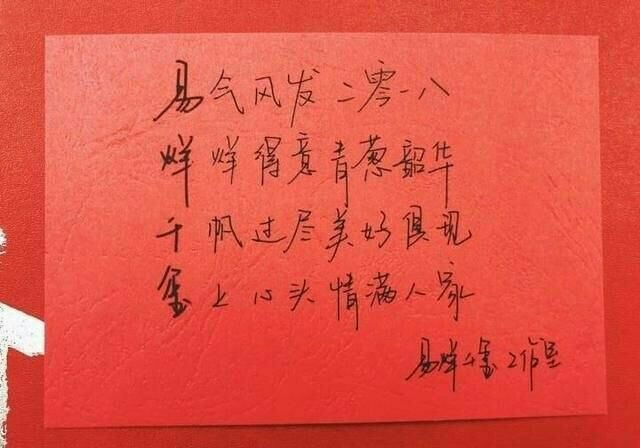 易气风发二零一八
烊烊得意青葱韶华
千帆过尽美好俱现
玺上心头情满人家
易烊千玺工作室